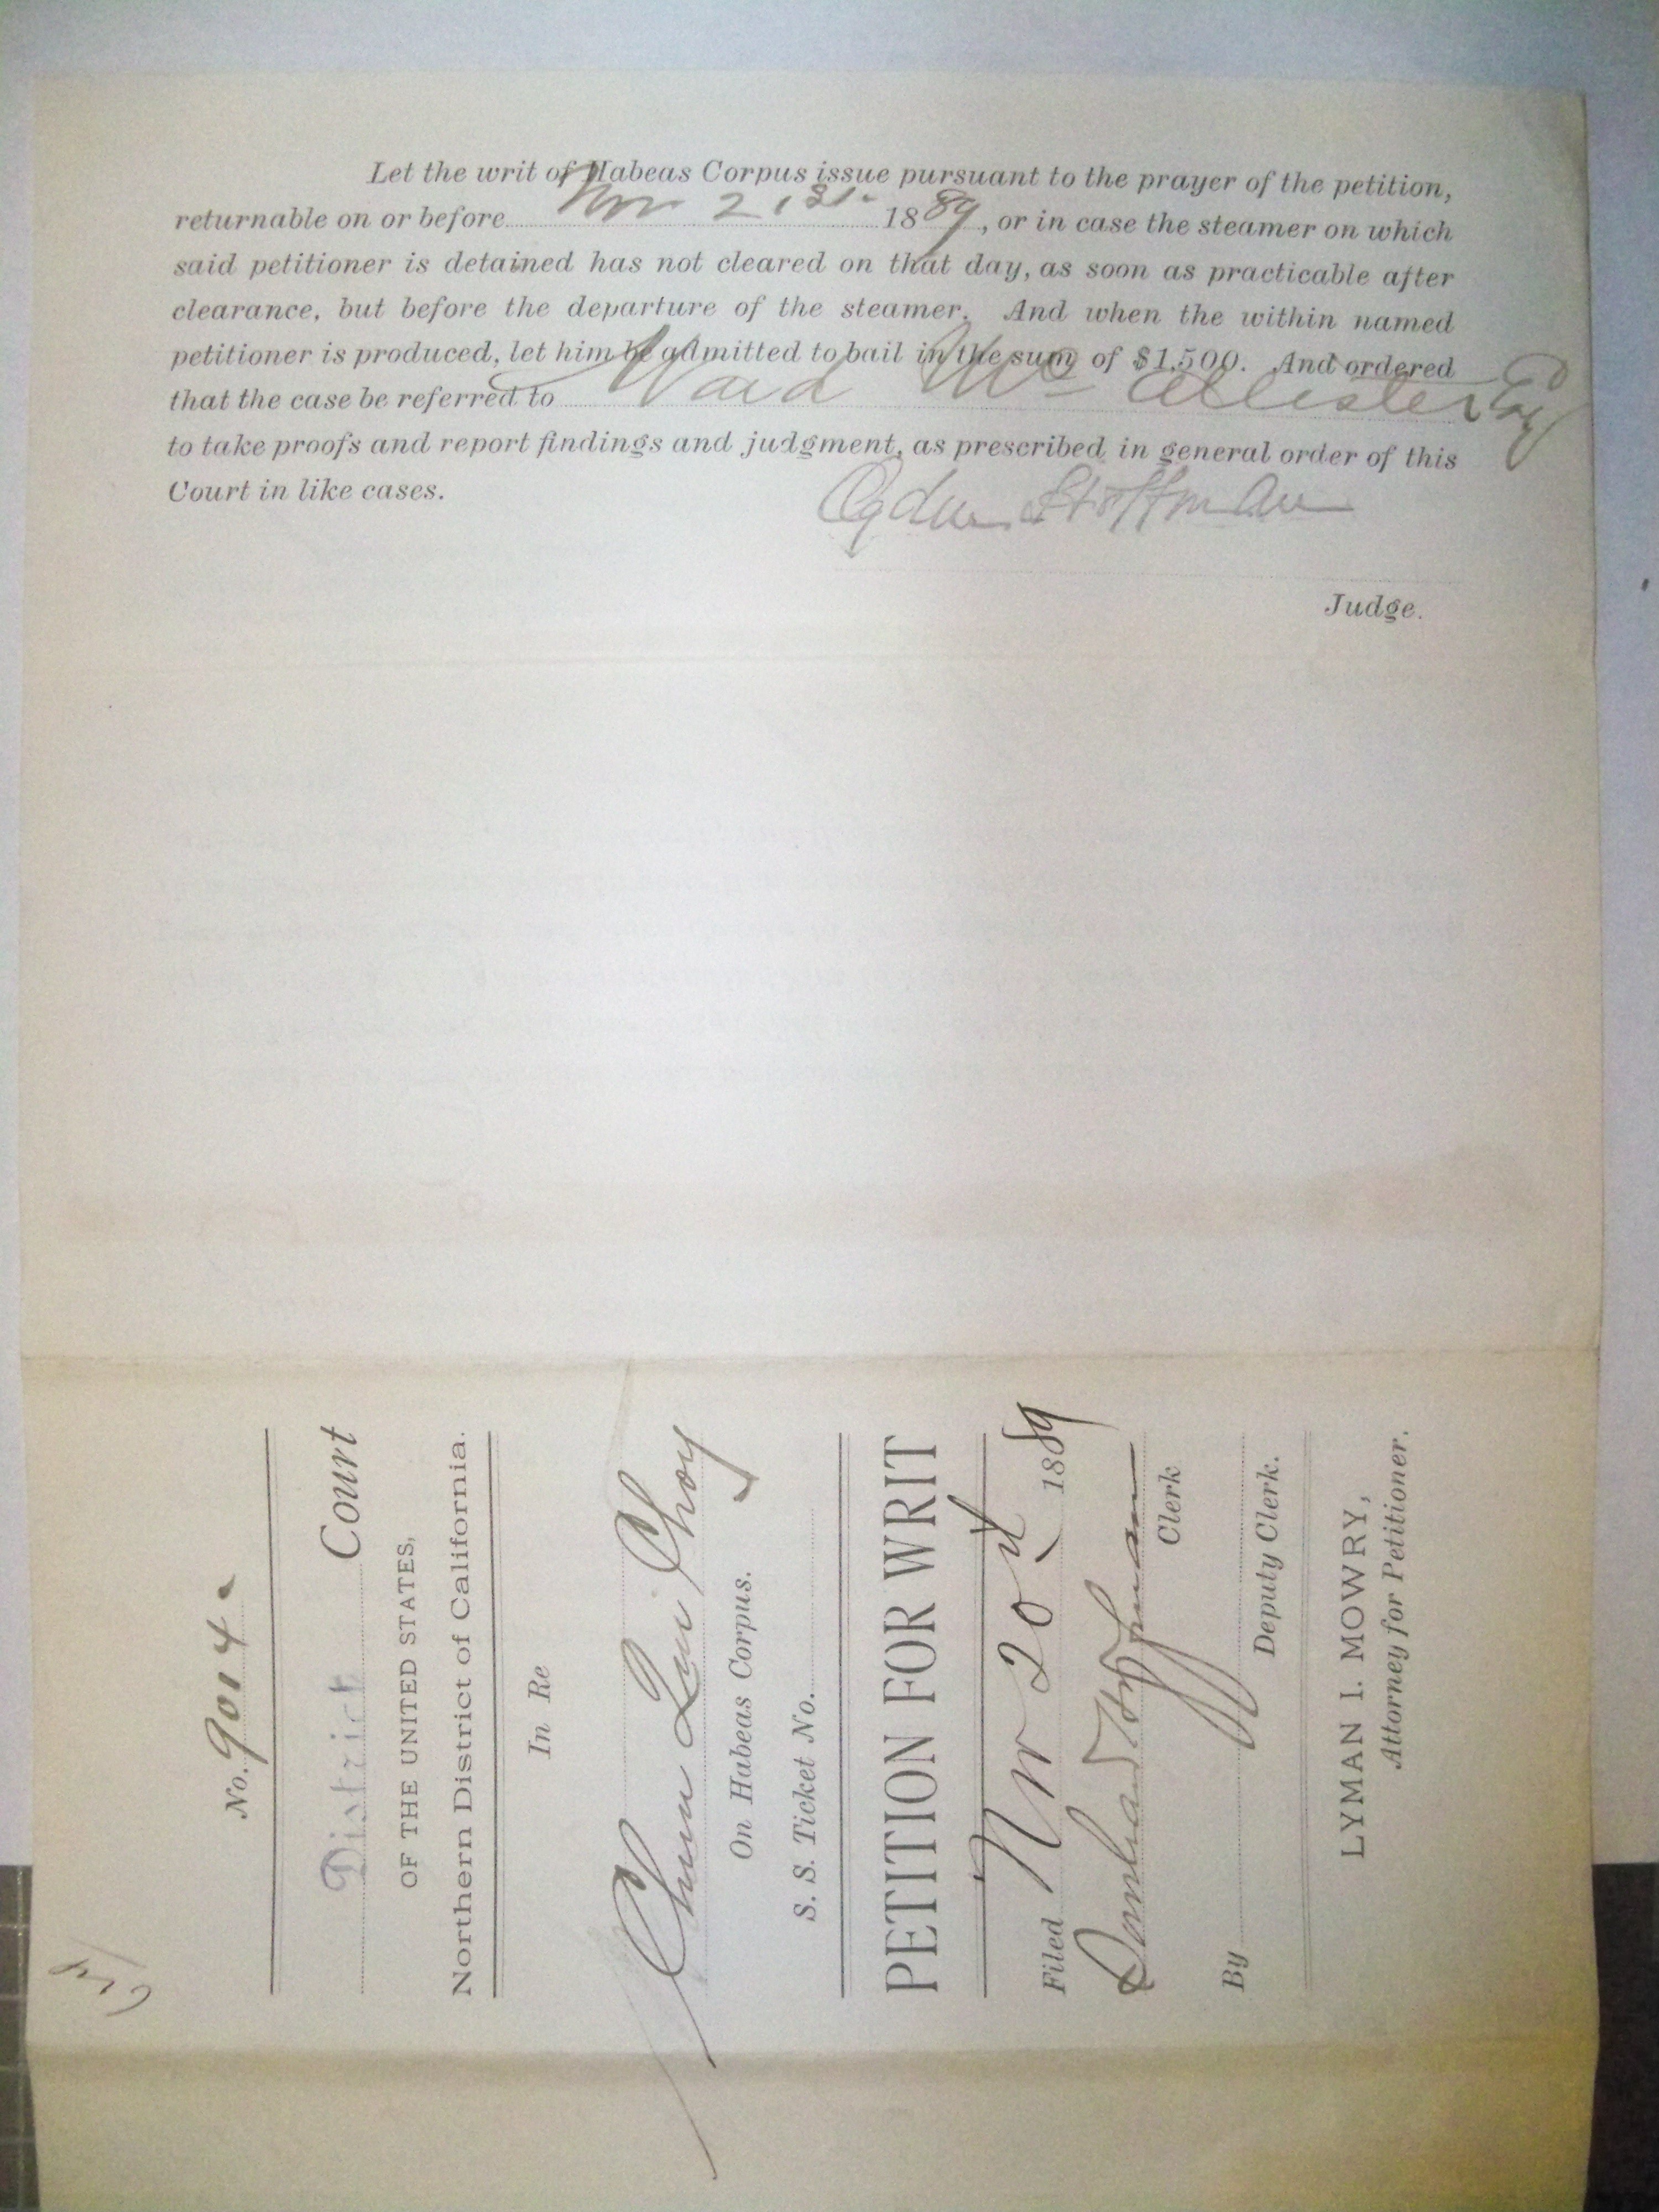 Let the writ of Habeas Corpus issue pursuant to the prayer of the petition,
returnable on or before Nov 21st 1889, or in case the steamer on which
said petitioner is detained has not cleared on that day, as soon as practicable after
clearance, but before the departure of the steamer. And when the within named
petitioner is produced, let him be admitted to bail in the sum of $1,500. And ordered
that the case be referred to Ward McAllister Esq
to take proofs and report findings and judgment, as prescribed in general order of this
Court in like cases.
Ogden Hoffman
Judge.
No. 9014.
District Court
OF THE UNITED STATES,
Northern District of California.
In Re
Chun Choy
On Habeas Corpus.
S. S. Ticket No.
PETITION FOR WRIT
Filed Nov 20th 1889
Hoffman
Clerk
By
Deputy Clerk.
LYMAN I. MOWRY,
Attorney for Petitioner.